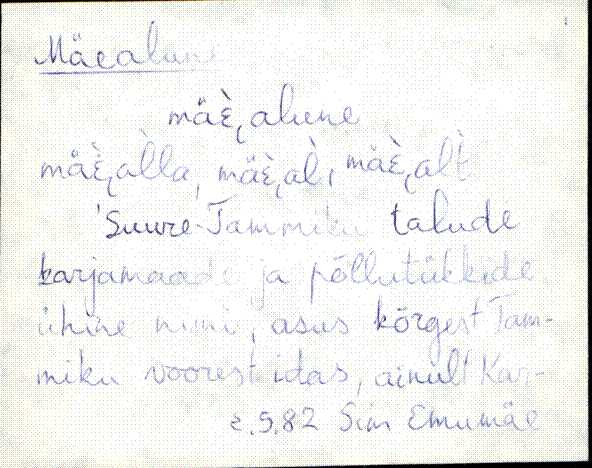 Mäealune
mäè̬alune
mäè̬àlla, mäè̬al, mäè̬alt
'Suure-Tammiku talude
karjamaade ja põllutükkide
ühine nimi, asus kõrgest Tam-
miku voorest idas, ainult Kar-
2.5.82 Siim Emumäe